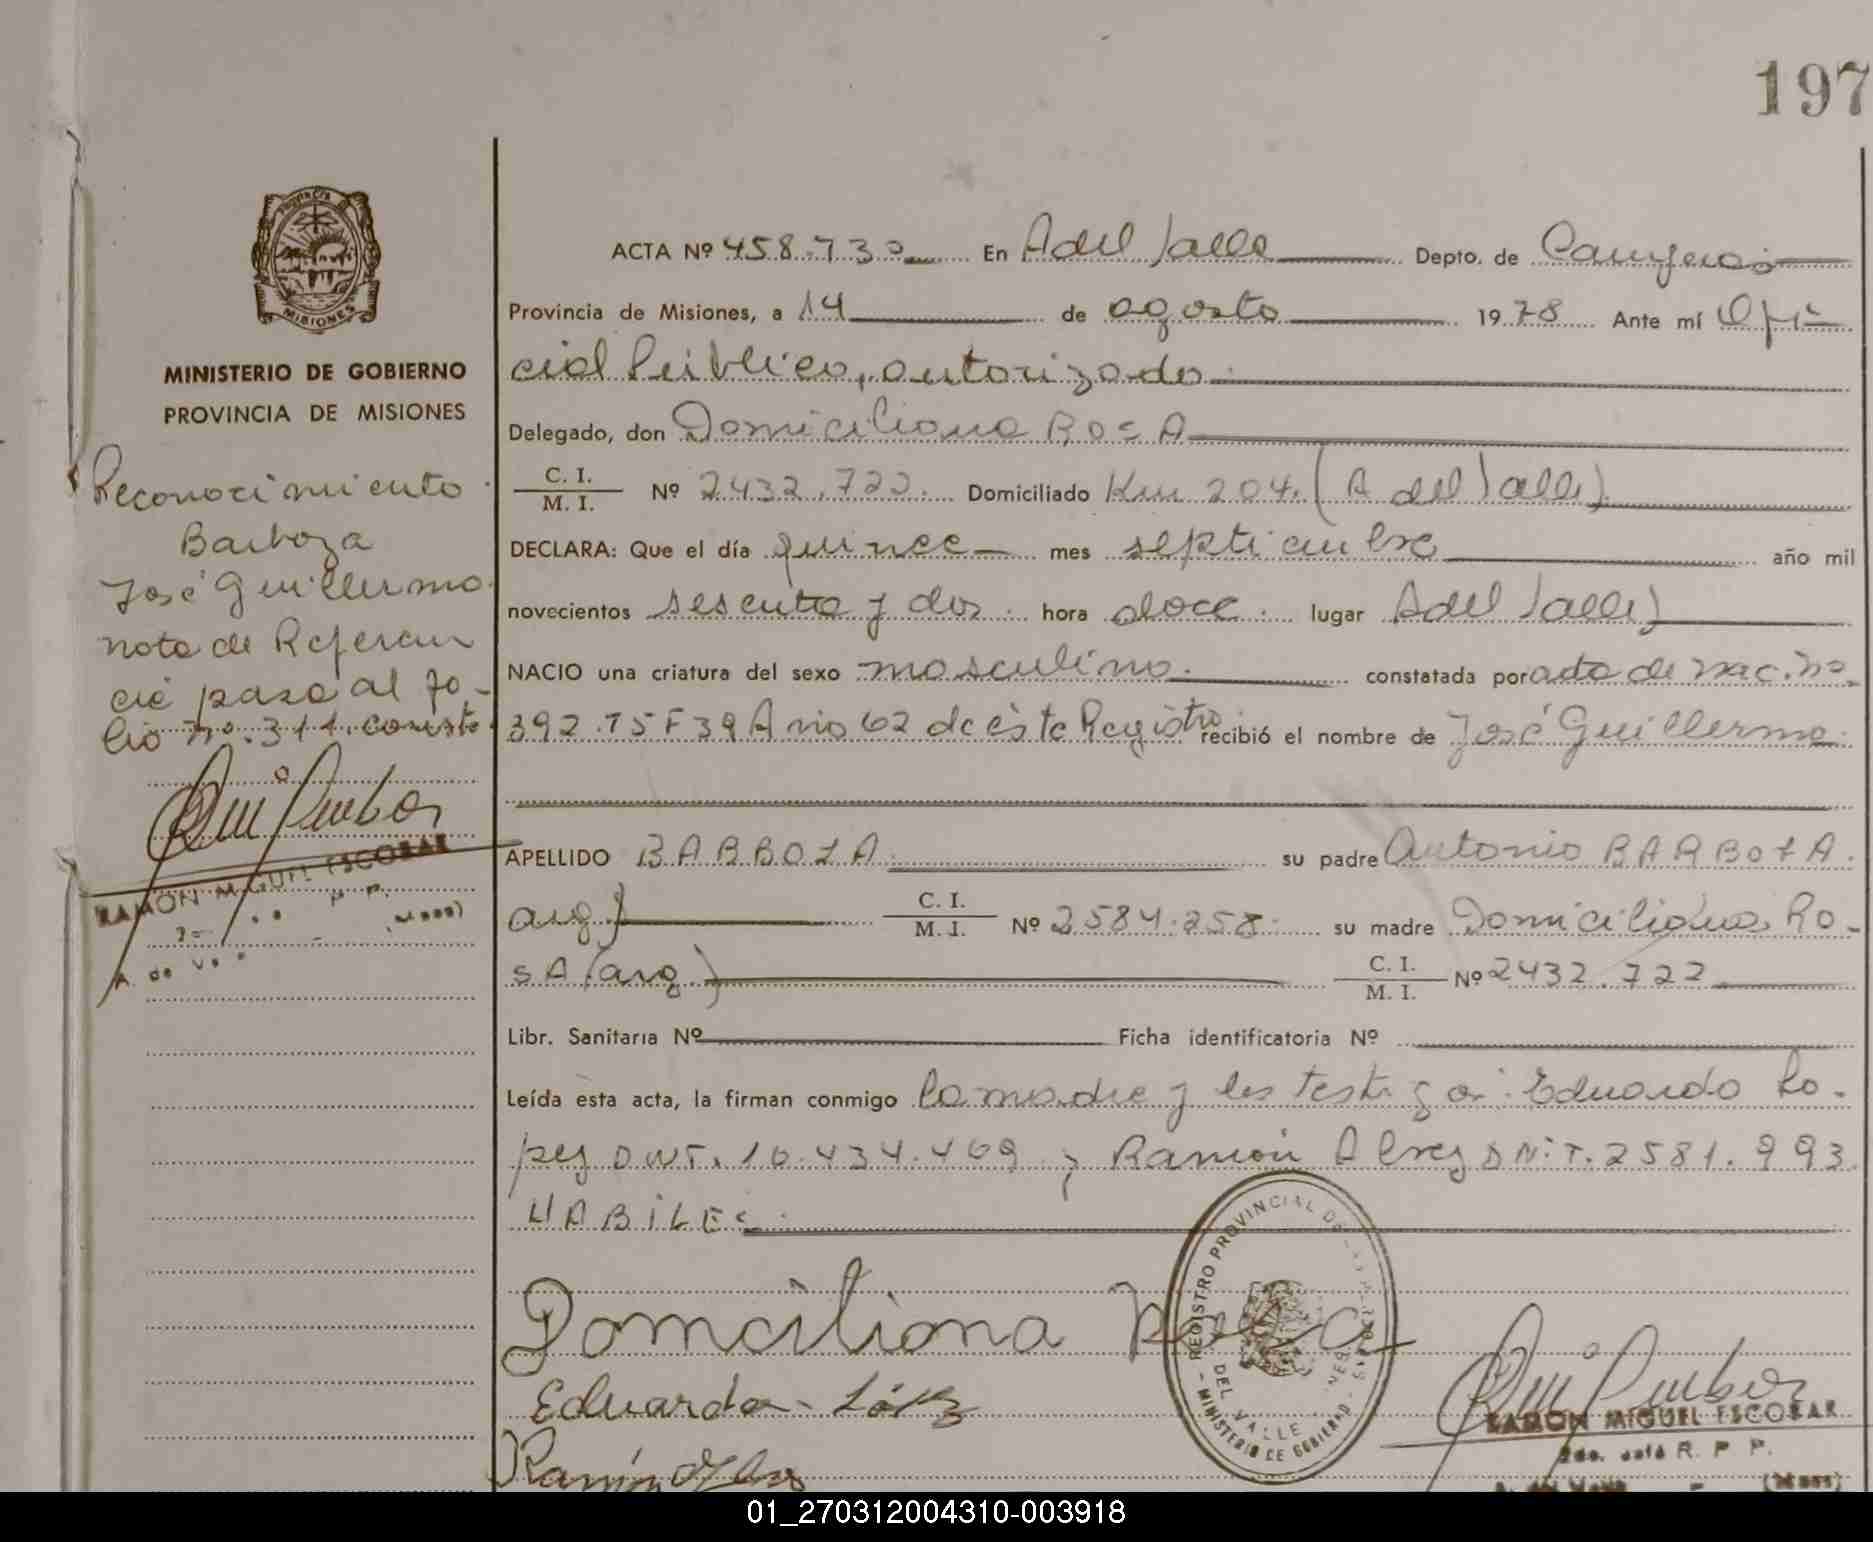 197
MINISTERIO DE GOBIERNO
PROVINCIA DE MISIONES
Reconocimiento
Barboza
José Guillermo
nota de Referen
cia pasa al fo-
lio nº.311. conste
RAMON MIGUEL ESCOBAR
ACTA Nº 458.T3º En A del Valle Depto. de
Provincia de Misiones, a 14 de agosto 1978 Ante mí Ofi-
cial Público, autorizado
Delegado, don Domiciliana ROSA
C. I. / M. I. Nº 2432.722. Domiciliado Km 204. (A del Valle)
DECLARA: Que el día quince mes septiembre año mil
novecientos sesenta y dos. hora doce. lugar A del Valle)
NACIO una criatura del sexo masculino. constatada por acta de nac. nº
392.T5 F39 Año 62 de èste Registro recibió el nombre de José Guillermo.
APELLIDO BARBOZA su padre Antonio BARBOZA.
arg) C. I. / M. I. Nº 2584.258. su madre Domiciliana Ro-
sA (arg.) C. I. / M. I. Nº 2432.722
Libr. Sanitaria Nº Ficha identificatoria Nº
Leída esta acta, la firman conmigo la madre y los testigos: Eduardo Lo-
pez DNI. 16.434.469 y Ramón Alvez DN:I. 2581.993
HABILES.
Domciliana Rosa
REGISTRO PROVINCIAL DE
DEL VALLE
- MINISTERIO DE GOBIERNO -
Eduardo - López
Ramón
RAMON MIGUEL ESCOBAR
R. P. P.
01_270312004310-003918